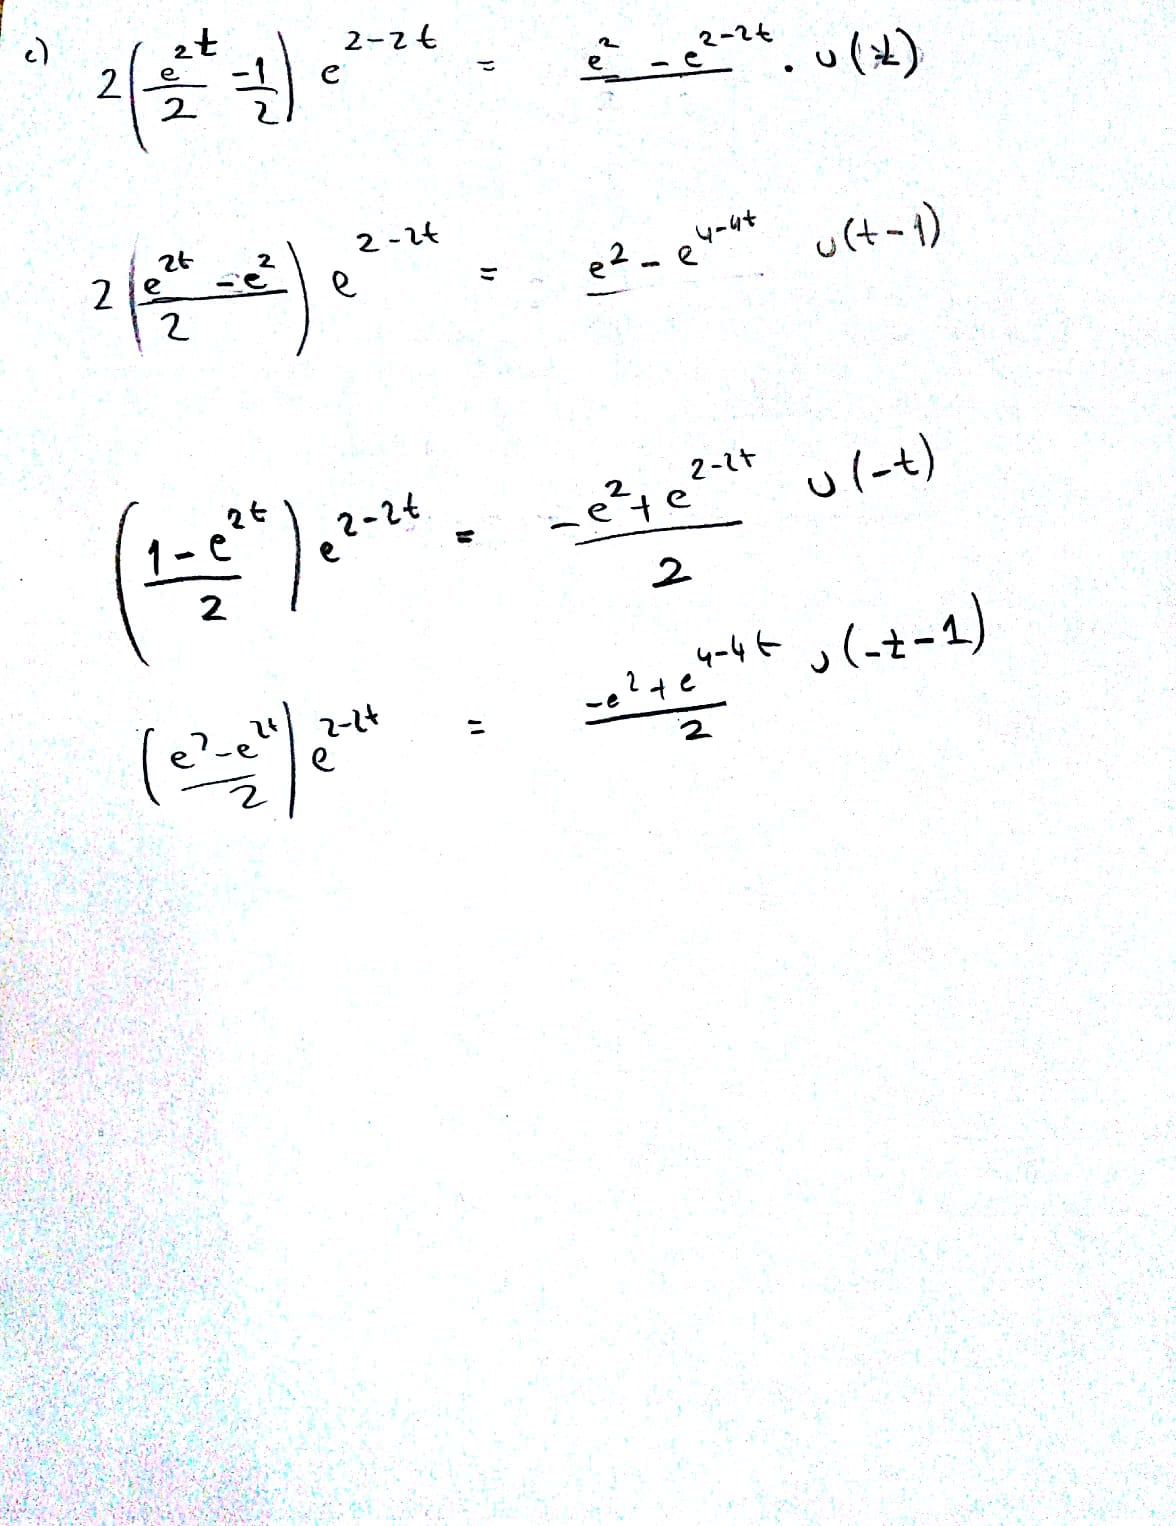 c) 2(e^{2t}/2 -1/2) e^{2-2t} = e^2 - e^{2-2t} . u(t)
2(e^{2t} - e^2 / 2) e^{2-2t} = e^2 - e^{4-4t} u(t-1)
(1-e^{2t} / 2) e^{2-2t} = -e^2+e^{2-2t} / 2 u(-t)
(e^2-e^{2t} / 2) e^{2-2t} = -e^2+e^{4-4t} / 2 u(-t-1)